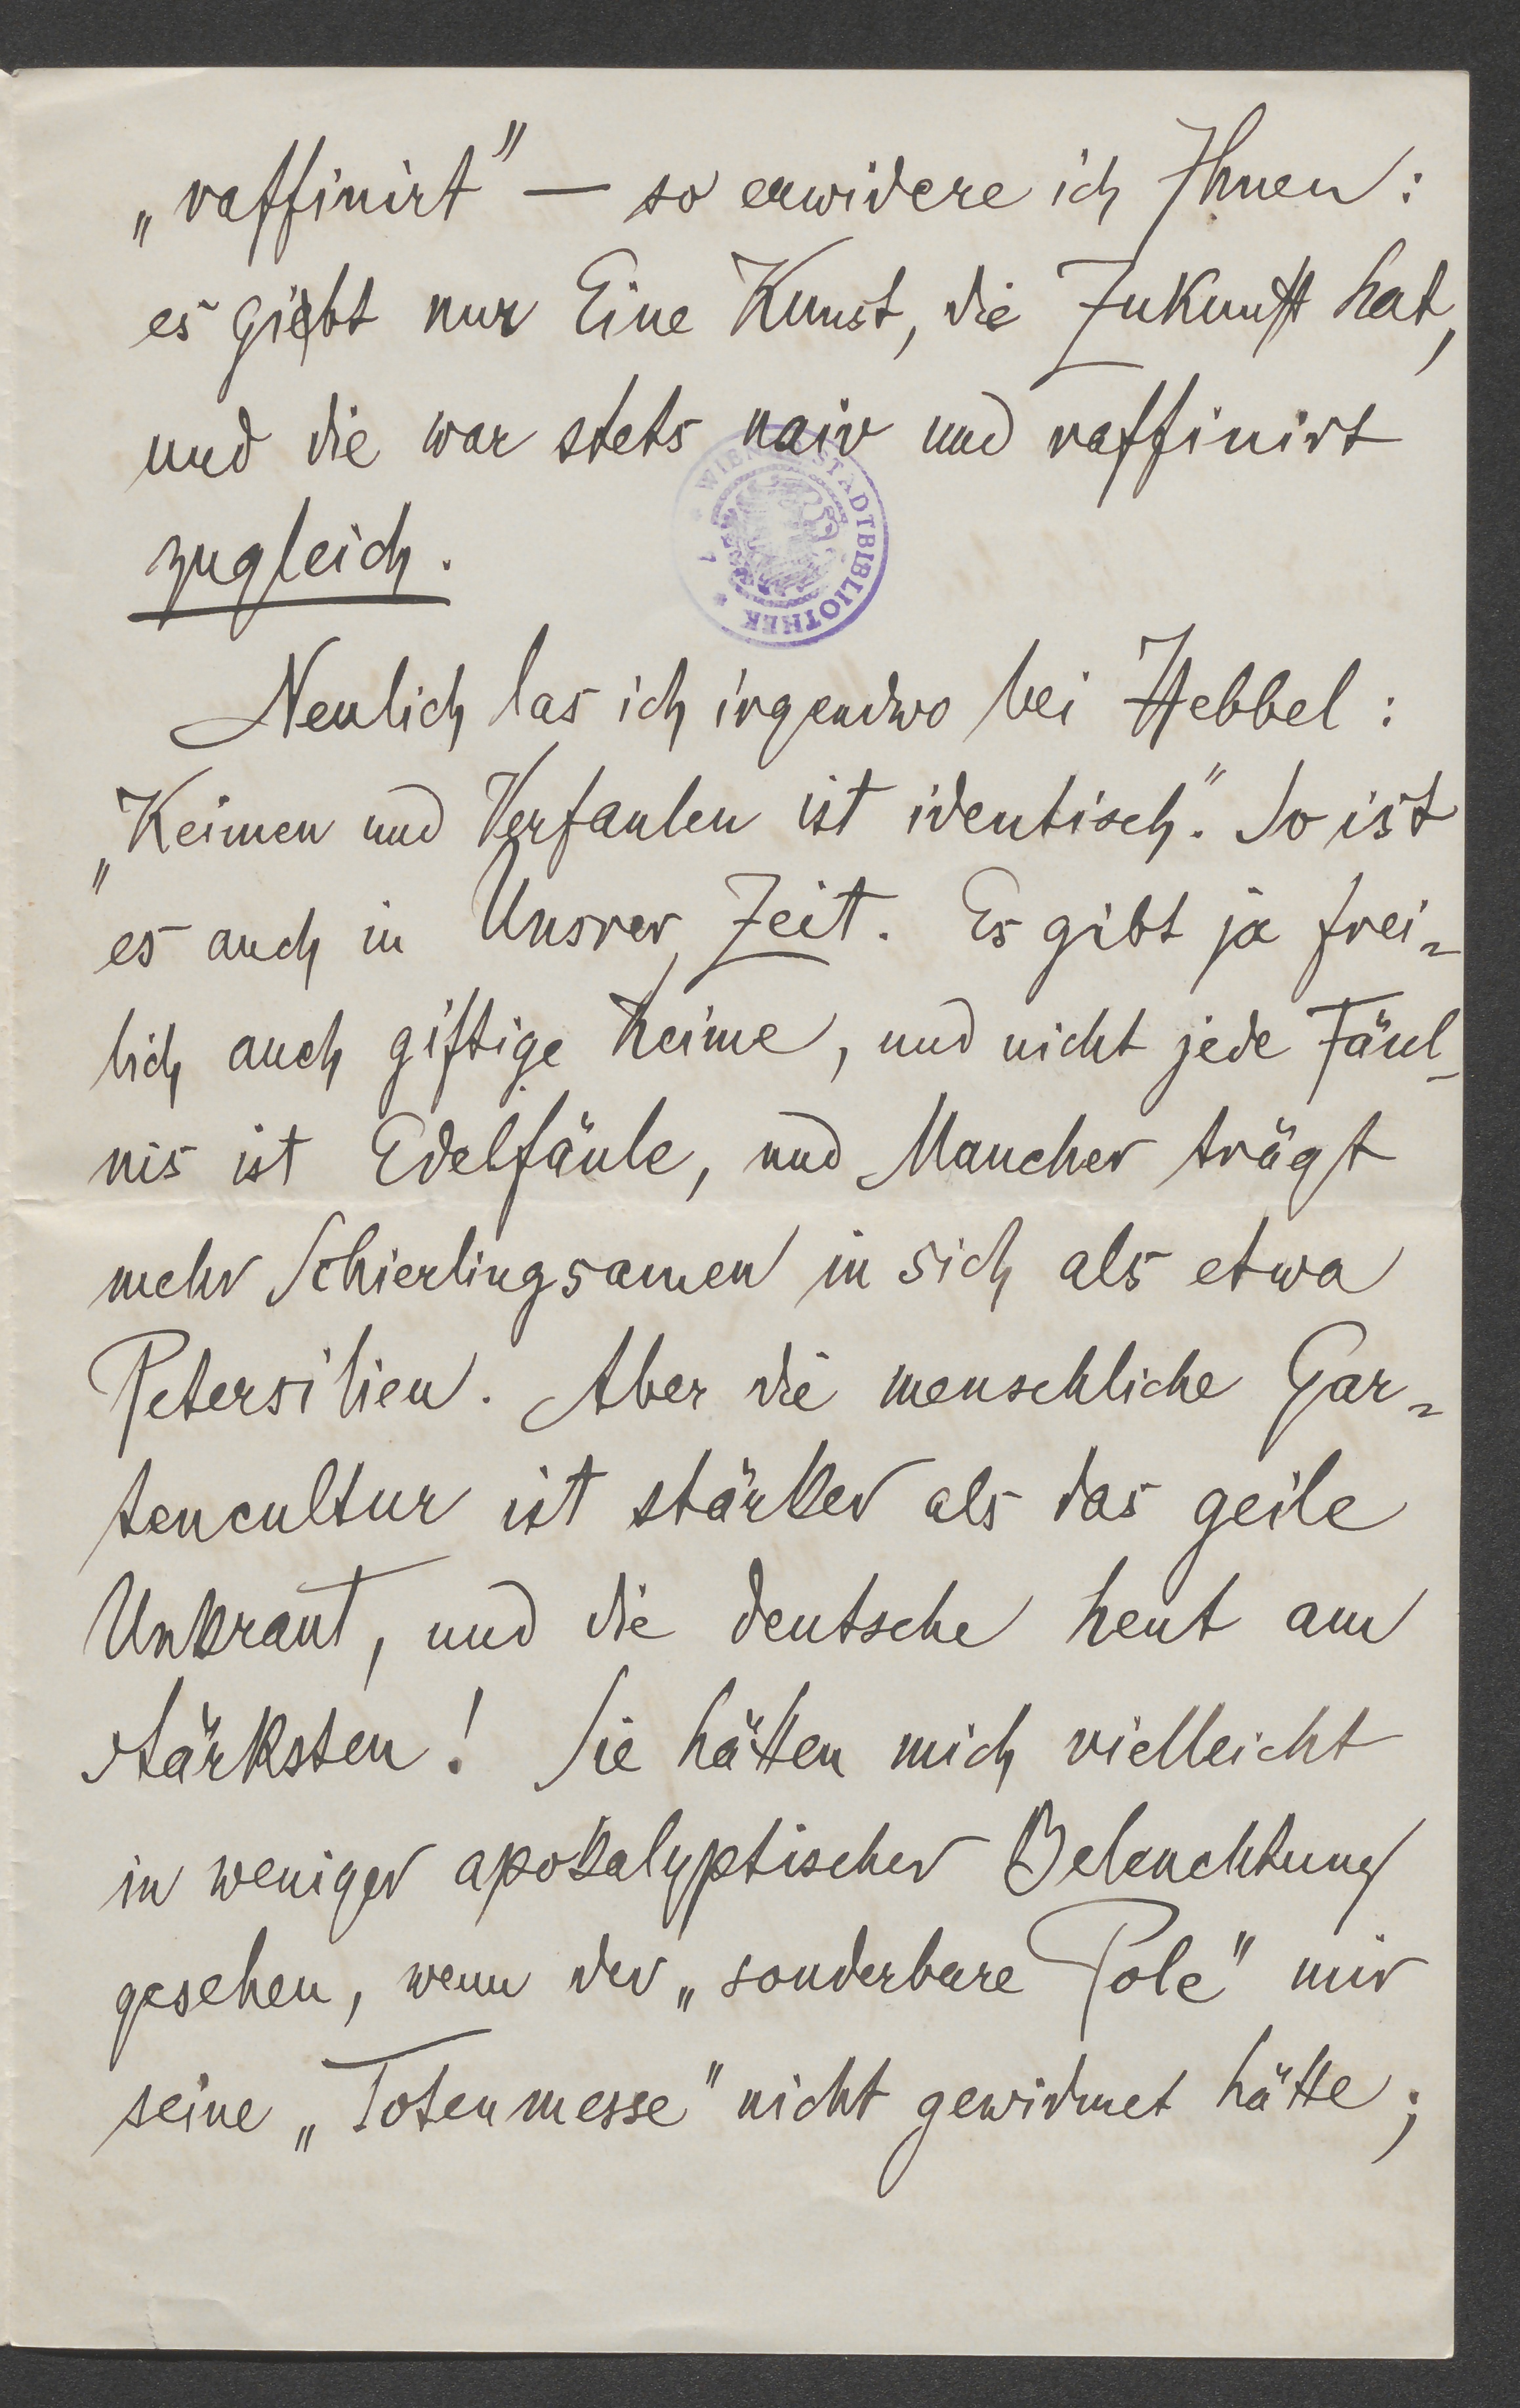 „raffinirt" — so erwidere ich Ihnen:
es giebt nur Eine Kunst, die Zukunft hat,
und die war stets naiv und raffinirt
zugleich.
WIENER STADTBIBLIOTHEK
Neulich las ich irgendwo bei Hebbel:
„Keimen und Verfaulen ist identisch". So ist
es auch in Unsrer Zeit. Es gibt ja frei-
lich auch giftige Keime, und nicht jede Fäul-
nis ist Edelfäule, und Mancher trägt
mehr Schierlingsamen in sich als etwa
Petersilien. Aber die menschliche Gar-
tencultur ist stärker als das geile
Unkraut, und die deutsche heut am
stärksten! Sie hätten mich vielleicht
in weniger apokalyptischer Beleuchtung
gesehen, wenn der „sonderbare Pole" mir
seine „Totenmesse" nicht gewidmet hätte;